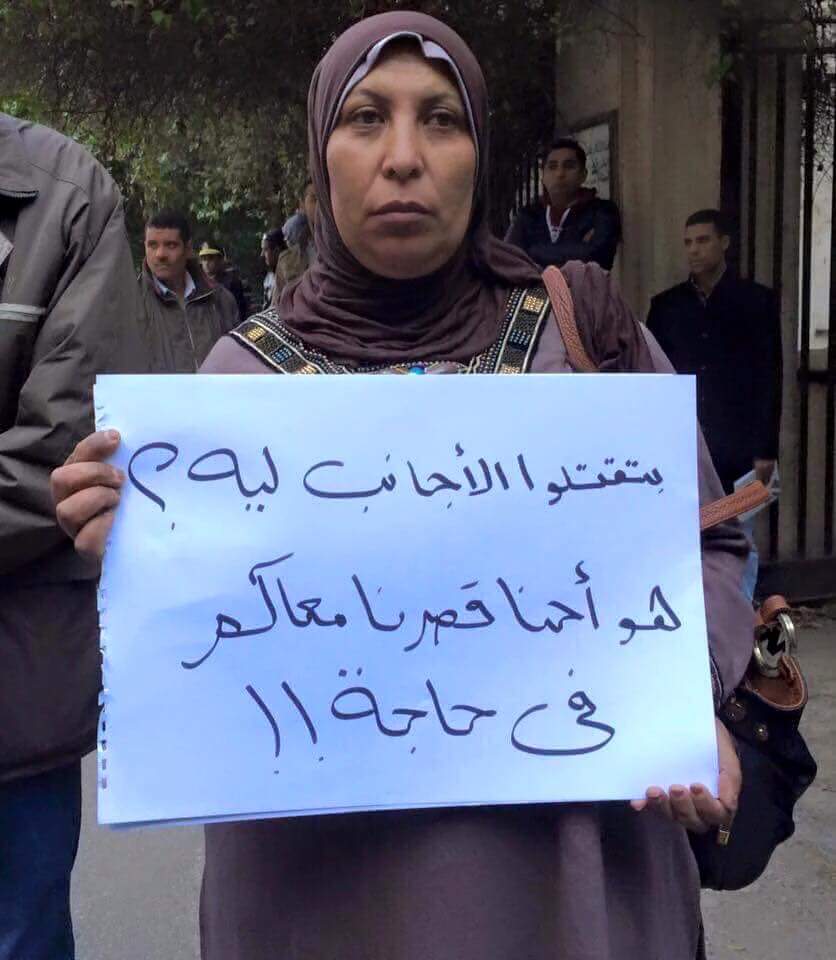 بتقتلوا الأجانب ليه ؟
هو أحنا قصرنا معاكم
فى حاجة !!